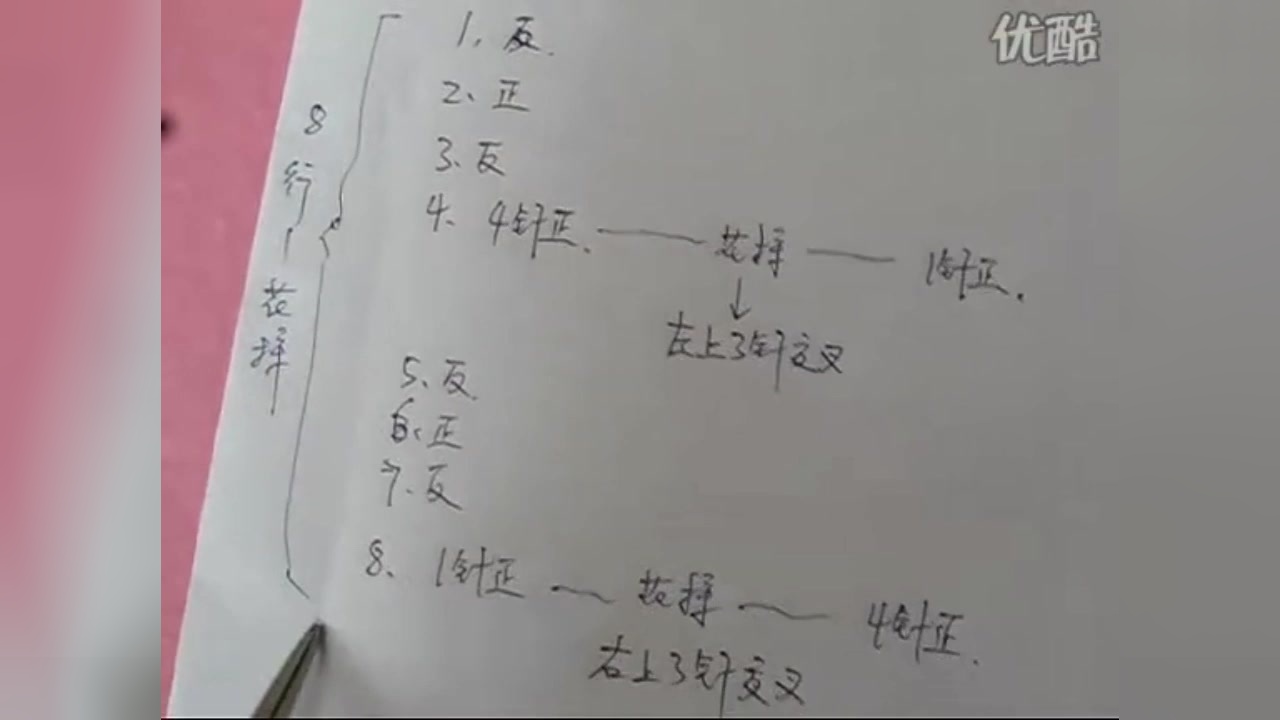 优酷
8行花样
1、反.
2、正
3、反
4、4针正.——花样——1针正.
↓
左上3针交叉
5、反.
6、正
7、反
8、1针正～花样～4针正.
右上3针交叉